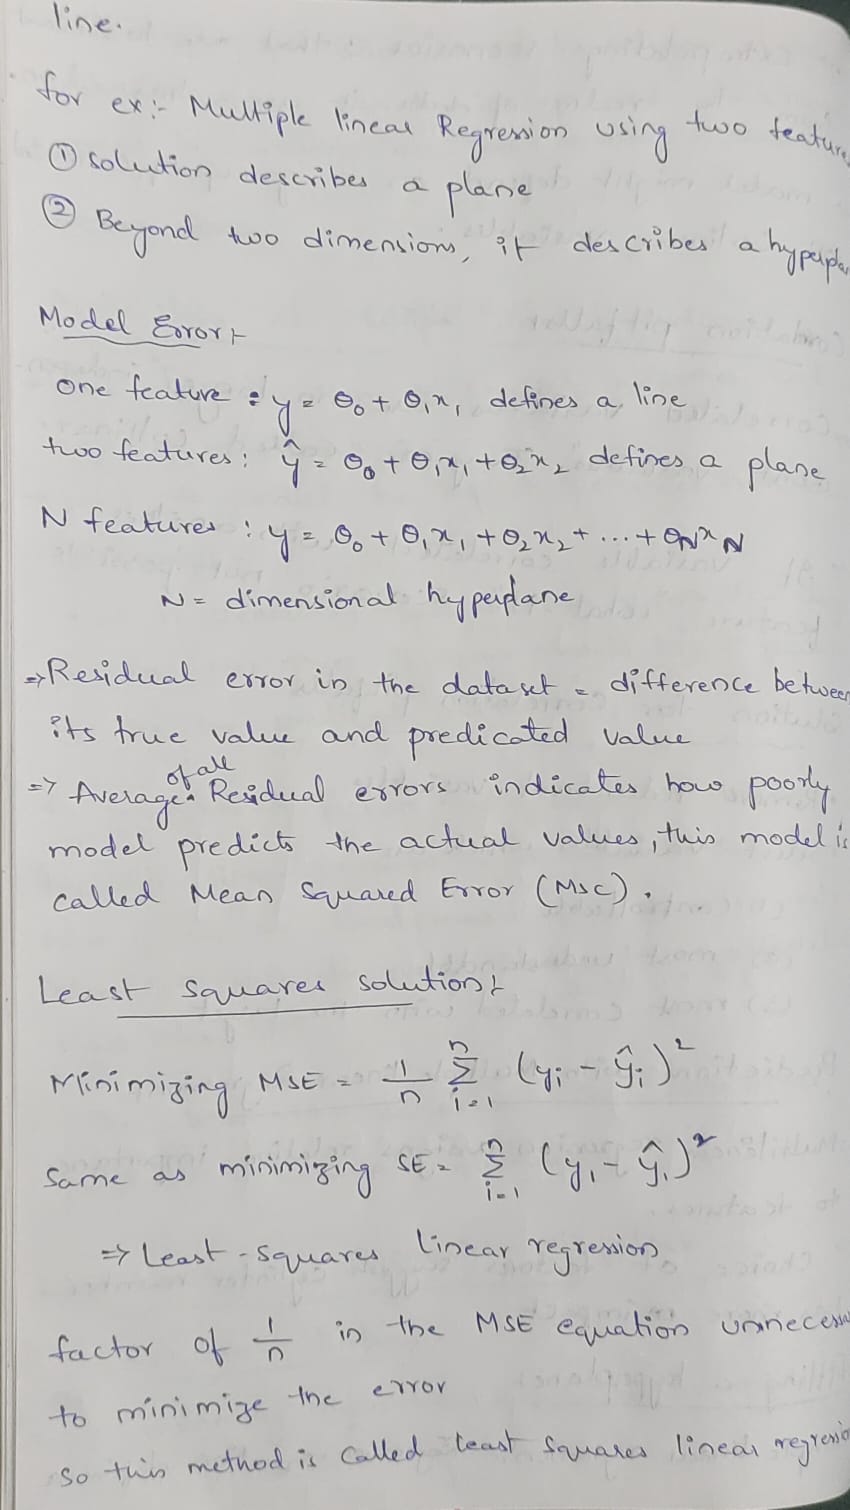 line.
for ex:- Multiple linear Regression using two feature
① solution describes a plane
② Beyond two dimensions, it describes a hyperpla
Model Error:-
One feature : y = θ₀ + θ₁x₁ defines a line
two features : ŷ = θ₀ + θ₁x₁ + θ₂x₂ defines a plane
N features : y = θ₀ + θ₁x₁ + θ₂x₂ + ... + θNxN
N = dimensional hyperplane
⇒ Residual error in the dataset = difference between
its true value and predicated value
of all
⇒ Average Residual errors indicates how poorly
model predicts the actual values, this model is
called Mean Squared Error (MSC).
Least Squares solution:-
Minimizing MSE = 1/n Σ i=1 n (yi - ŷi)²
Same as minimizing SE = Σ i=1 n (yi - ŷi)²
⇒ Least-squares linear regression
factor of 1/n in the MSE equation unnecessa
to minimize the error
So this method is called least squares linear regressio